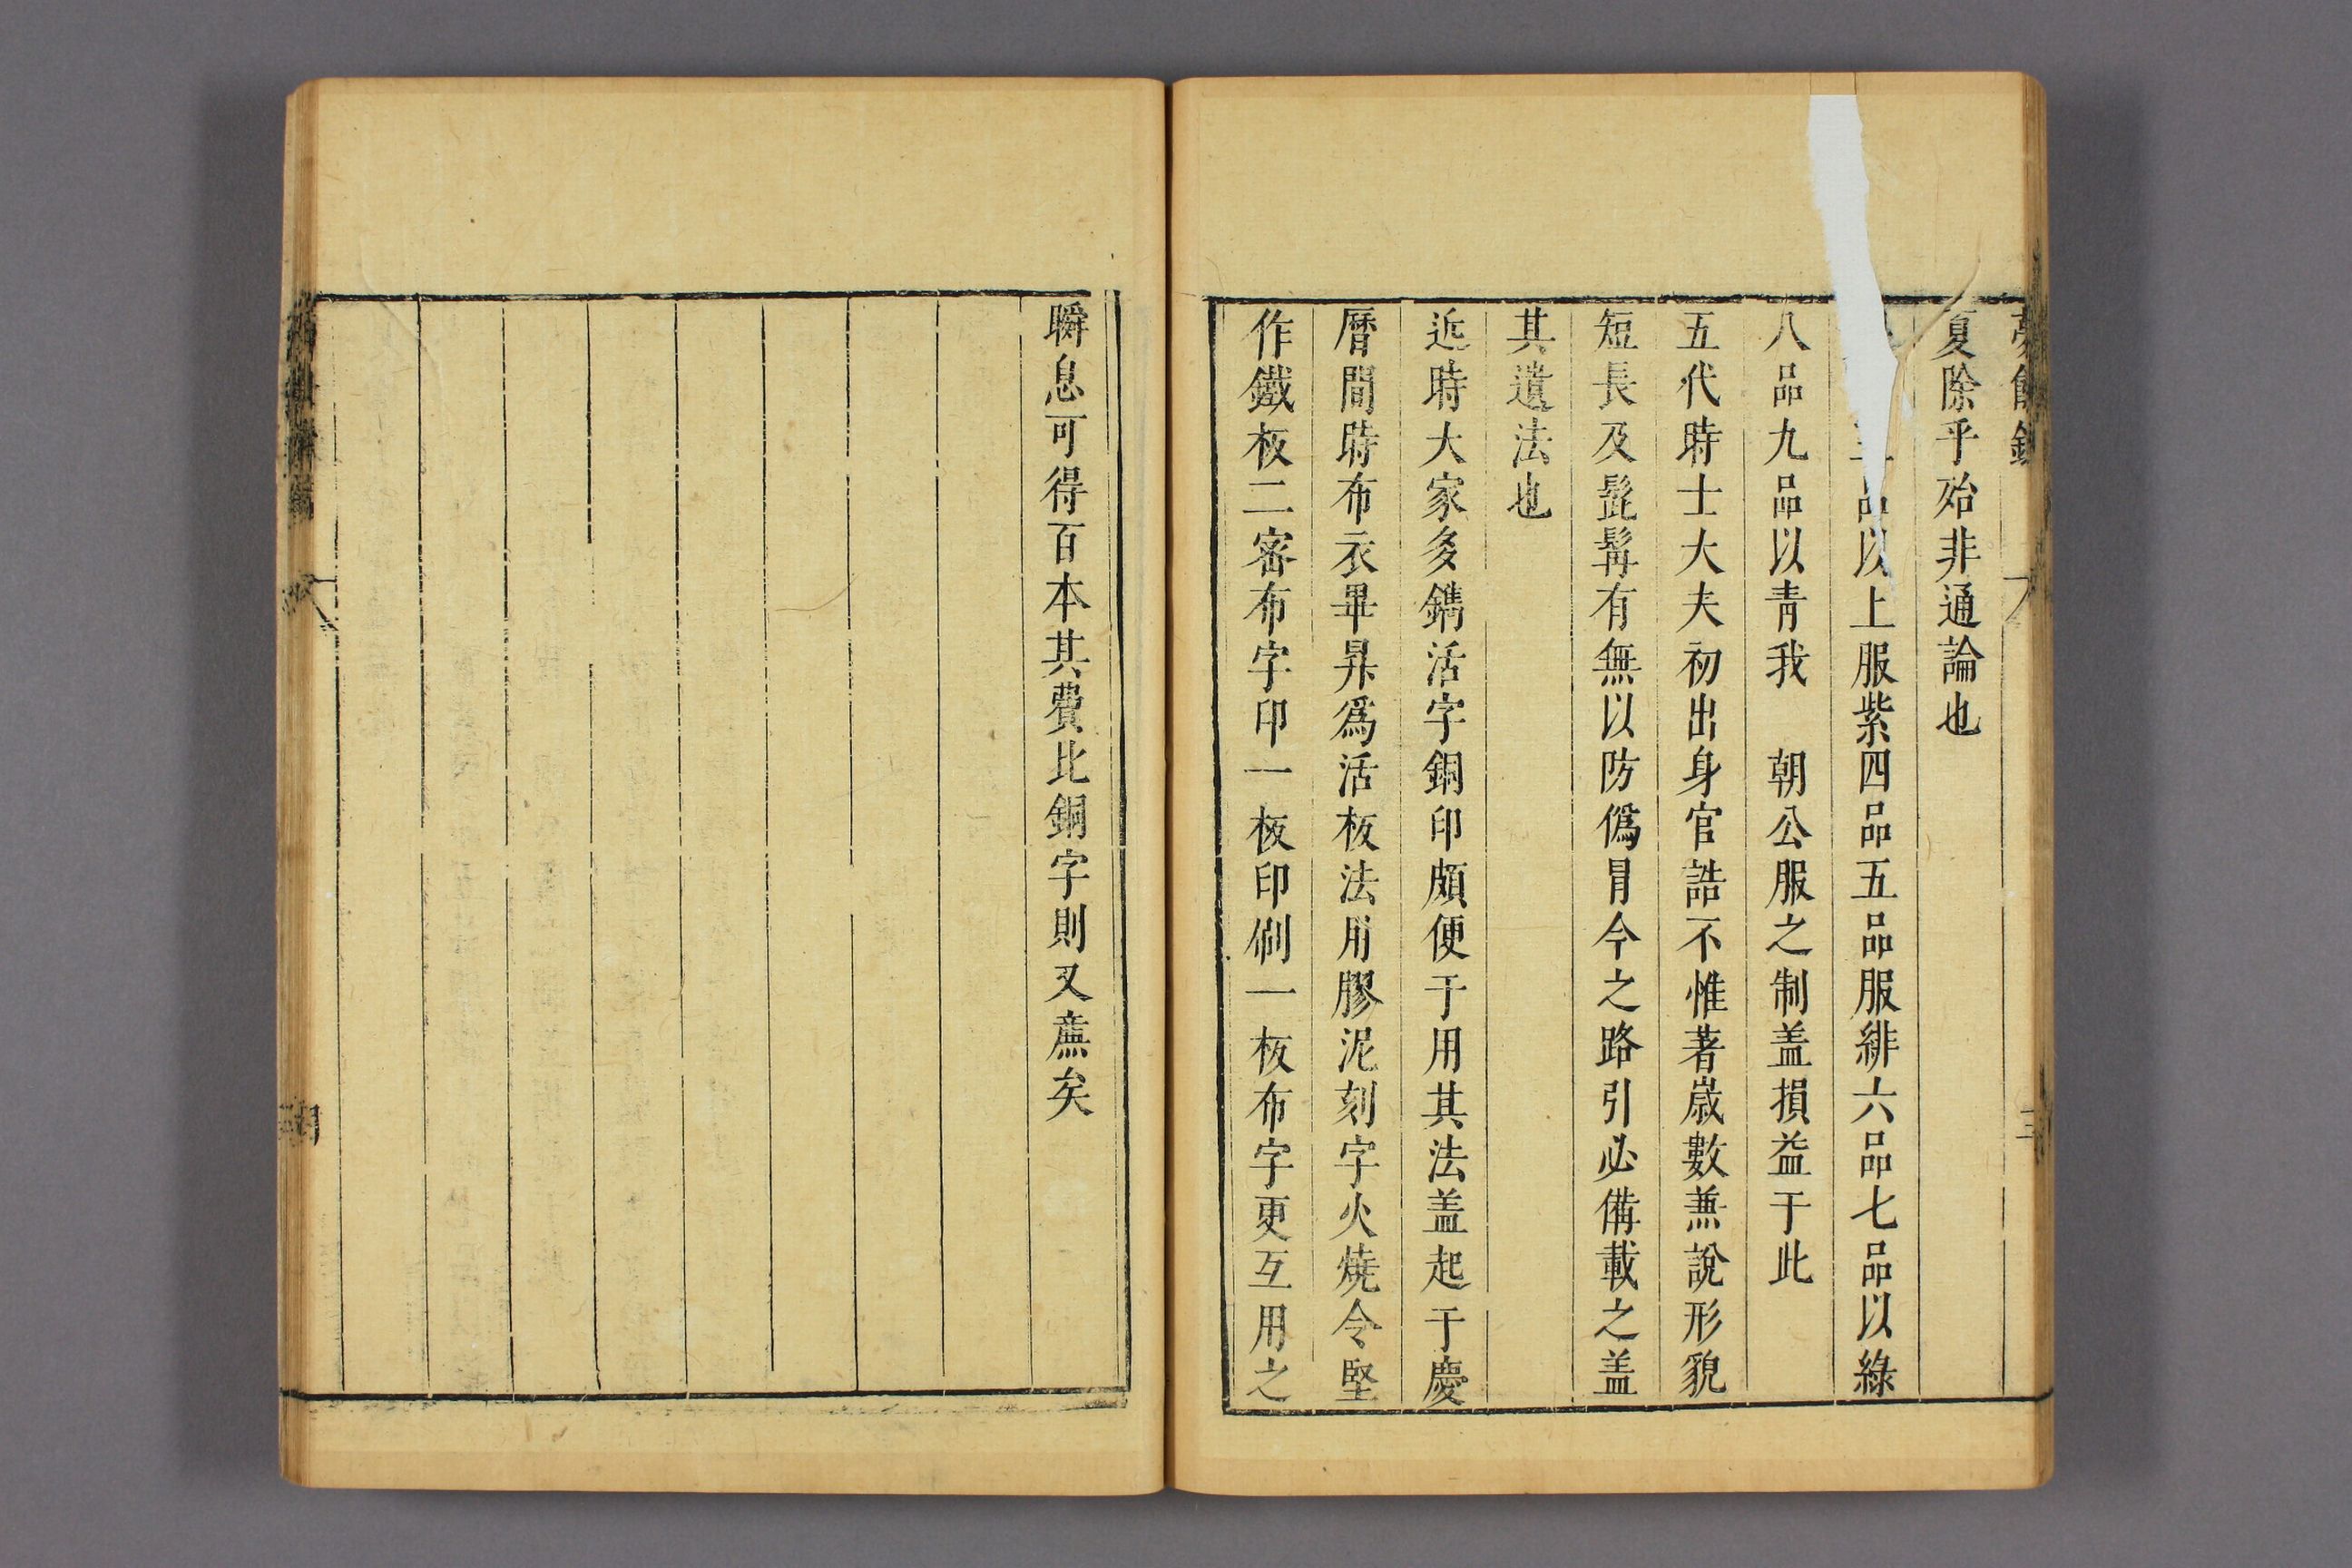 夏除乎殆非通論也
品以上服紫四品五品服緋六品七品以綠
八品九品以青我　朝公服之制盖損益于此
五代時士大夫初出身官誥不惟著歲數兼說形貌
短長及髭髯有無以防僞冒今之路引必備載之盖
其遺法也
近時大家多鐫活字銅印頗便于用其法盖起于慶
曆間時布衣畢昇爲活板法用膠泥刻字火燒令堅
作鐵板二密布字印一板印刷一板布字更互用之
瞬息可得百本其費比銅字則又㢘矣